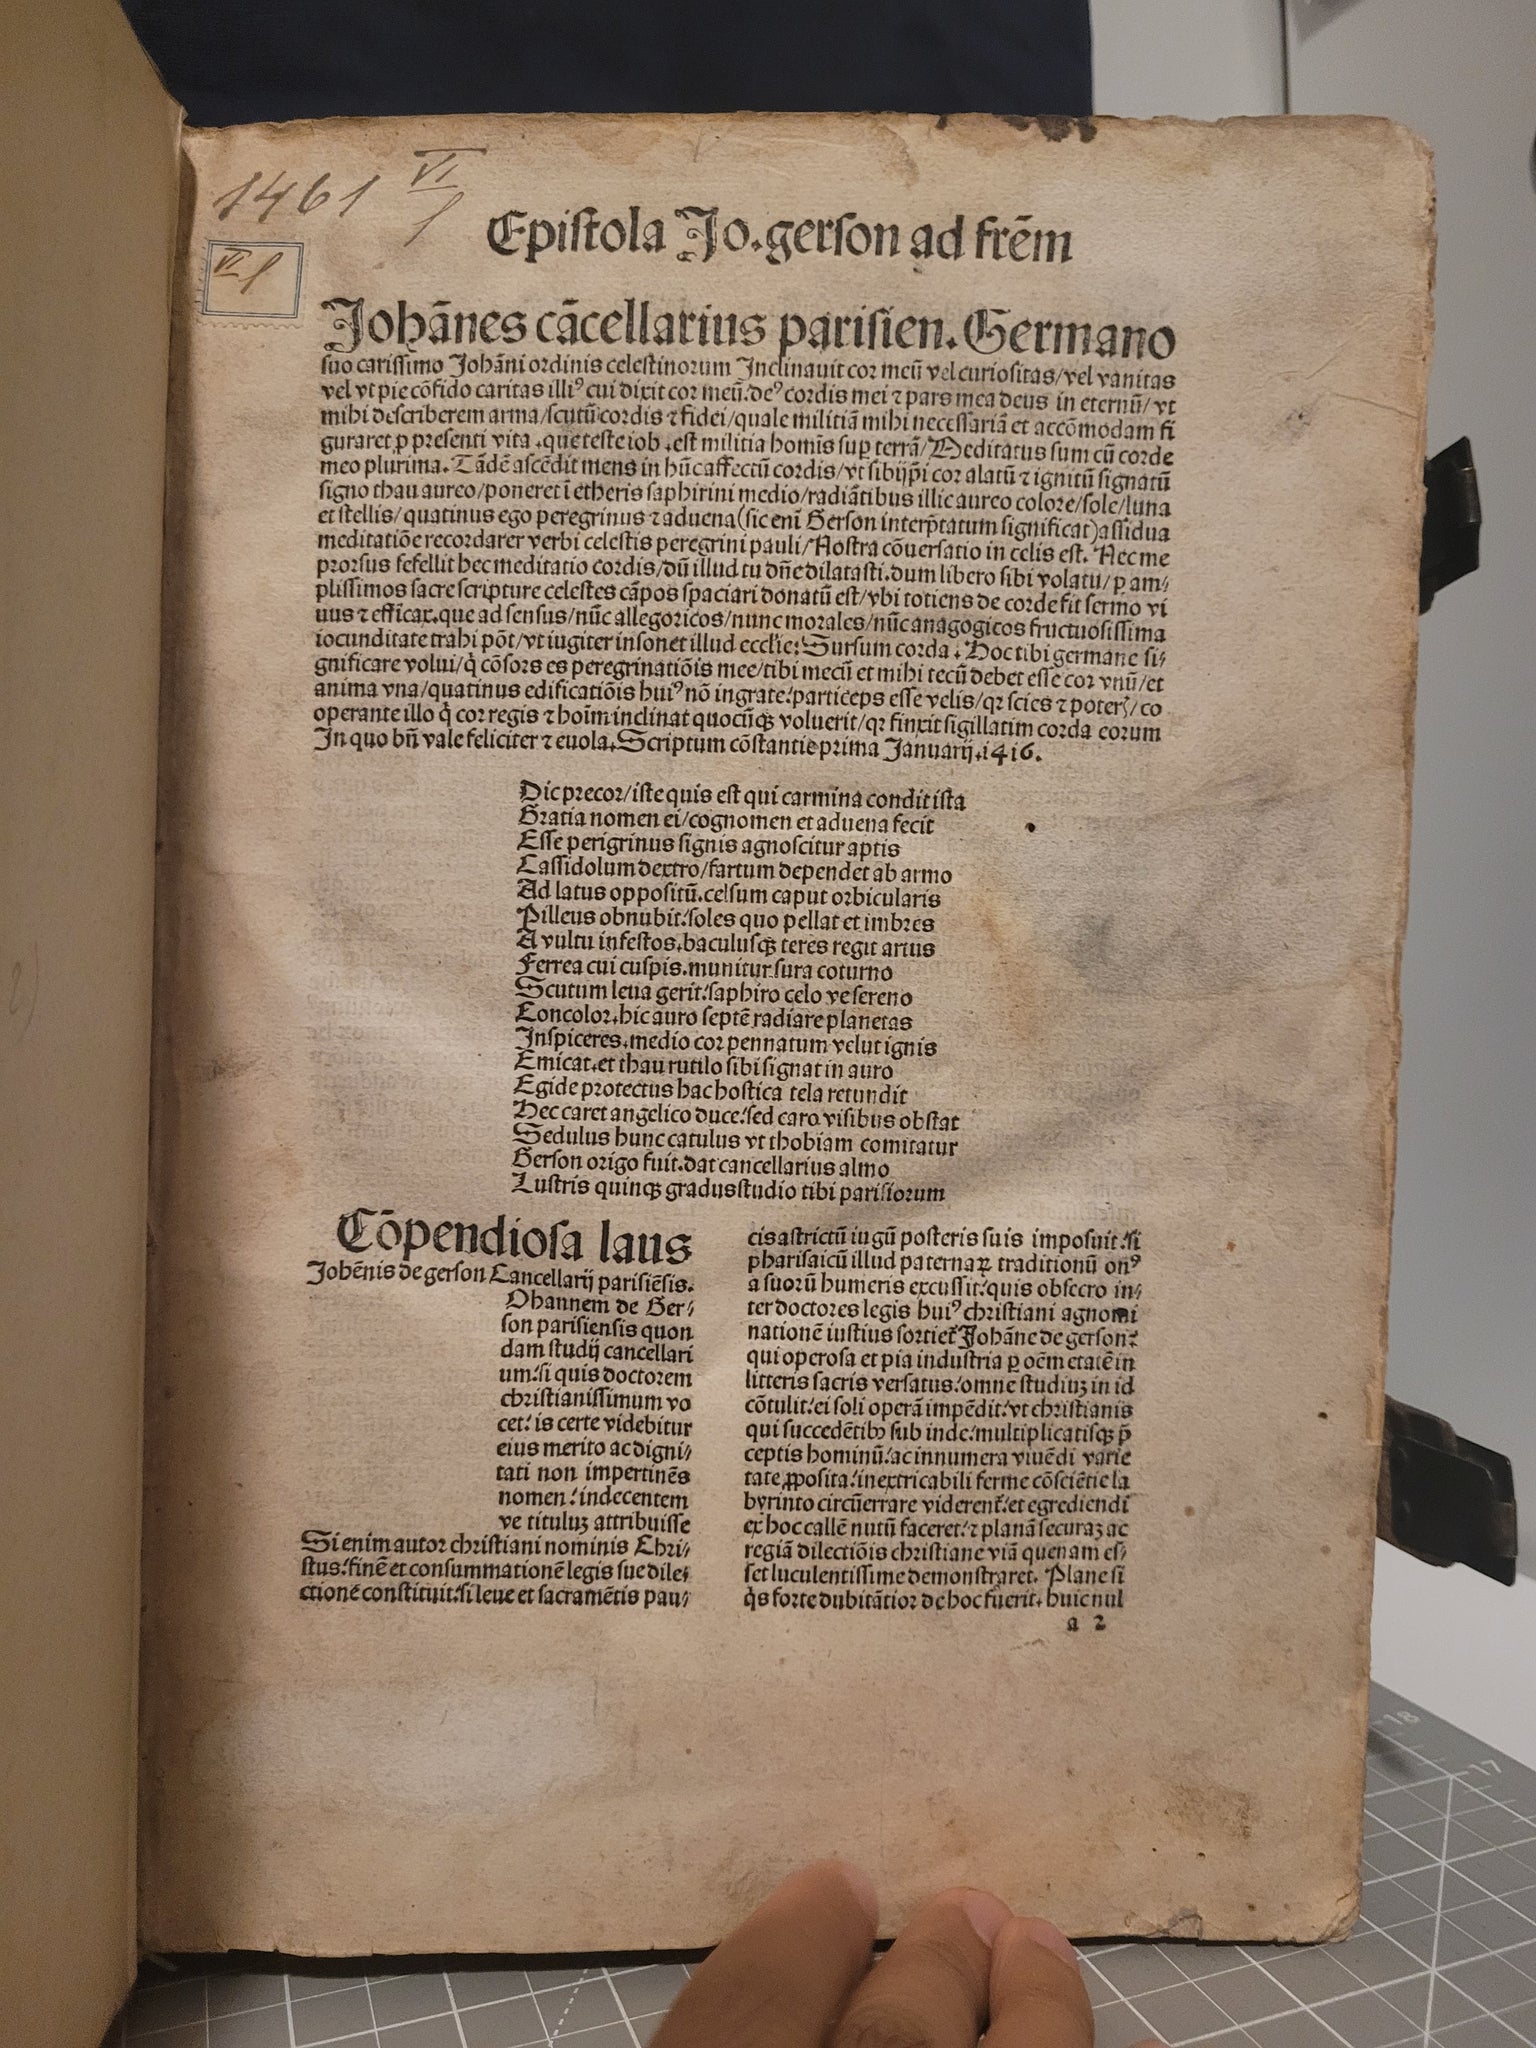 1461 VI
VI
Epistola Jo.gerson ad frēm
Johānes cācellarius parisien. Germano
suo carissimo Johāni ordinis celestinorum Inclinauit cor meū vel curiositas/vel vanitas
vel vt pie cōfido caritas illiꝰ cui dixit cor meū.deꝰ cordis mei ⁊ pars mea deus in eternū/vt
mihi describerem arma/scutū cordis ⁊ fidei/quale militiā mihi necessariā et accōmodam fi
guraret ꝑ presenti vita.que teste iob.est militia homīs suꝑ terrā/Meditatus sum cū corde
meo plurima.Tādē ascēdit mens in hūc affectū cordis/vt sibijpi cor alatū ⁊ ignitū signatū
signo thau aureo/poneret ī etheris saphirini medio/radiātibus illic aureo colore/sole/luna
et stellis/quatinus ego peregrinus ⁊ aduena(sic enī Gerson interp̄tatum significat)assidua
meditatiōe recordarer verbi celestis peregrini pauli/Nostra cōuersatio in celis est. Nec me
prorsus fefellit hec meditatio cordis/dū illud tu dn̄e dilatasti.dum libero sibi volatu/ꝑ am⸗
plissimos sacre scripture celestes cāpos spaciari donatū est/vbi totiens de corde fit sermo vi
uus ⁊ efficax.que ad sensus/nūc allegoricos/nunc morales/nūc anagogicos fructuosissima
iocunditate trahi pōt/vt iugiter insonet illud ecclie:Sursum corda.Hoc tibi germane si⸗
gnificare volui/q̇ cōsors es peregrinatiōis mee/tibi mecū et mihi tecū debet esse cor vnū/et
anima vna/quatinus edificatiōis huiꝰ nō ingrate:particeps esse velis/qꝛ scies ⁊ poteꝝ/co
operante illo q̇ cor regis ⁊ hoīm inclinat quocūqꝫ voluerit/qꝛ finxit sigillatim corda eorum
In quo bn̄ vale feliciter ⁊ euola.Scriptum cōstantie prima Januarij.1416.
Dic precor/iste quis est qui carmina condit ista
Gratia nomen ei/cognomen et aduena fecit
Esse perigrinus signis agnoscitur aptis
Cassidolum dextro/fartum dependet ab armo
Ad latus oppositū.celsum caput orbicularis
Pilleus obnubit:soles quo pellat et imbres
A vultu infestos.baculusqꝫ teres regit artus
Ferrea cui cuspis.munitur sura coturno
Scutum leua gerit:saphiro celo ve sereno
Concolor.hic auro septē radiare planetas
Inspiceres.medio cor pennatum velut ignis
Emicat.et thau rutilo sibi signat in auro
Egide protectus hac hostica tela retundit
Nec caret angelico duce:sed caro visibus obstat
Sedulus hunc catulus vt thobiam comitatur
Gerson origo fuit.dat cancellarius almo
Lustris quinqꝫ gradus studio tibi parisiorum
Cōpendiosa laus
Johēnis de gerson Cancellarij parisiēsis.
Ohannem de Ger⸗
son parisiensis quon
dam studij cancellari
um:si quis doctorem
christianissimum vo
cet: is certe videbitur
eius merito ac digni⸗
tati non impertinēs
nomen: indecentem
ve tituluꝫ attribuisse
Si enim autor christiani nominis Chri⸗
stus:finē et consummationē legis sue dile⸗
ctionē constituit:si leue et sacramētis pau⸗
cis astrictū iugū posteris suis imposuit:si
pharisaicū illud paternaꝝ traditionū onꝰ
a suorū humeris excussit:quis obsecro in⸗
ter doctores legis huiꝰ christiani agnomi
nationē iustius sortiet Johāne de gerson:
qui operosa et pia industria ꝑ oēm etatē in
litteris sacris versatus:omne studiuꝫ in id
cōtulit:ei soli operā impēdit:vt christianis
qui succedētibꝰ sub inde:multiplicatisqꝫ p̄
ceptis hominū:ac innumera viuēdi varie
tate ꝓposita:inextricabili ferme cōsciētie la
byrinto circūerrare viderent:et egrediendi
ex hoc callē nutū faceret:⁊ planā securaꝫ ac
regiā dilectiōis christiane viā quenam es⸗
set luculentissime demonstraret. Plane si
q̇s forte dubitātior de hoc fuerit. huic nul
a 2
18
17